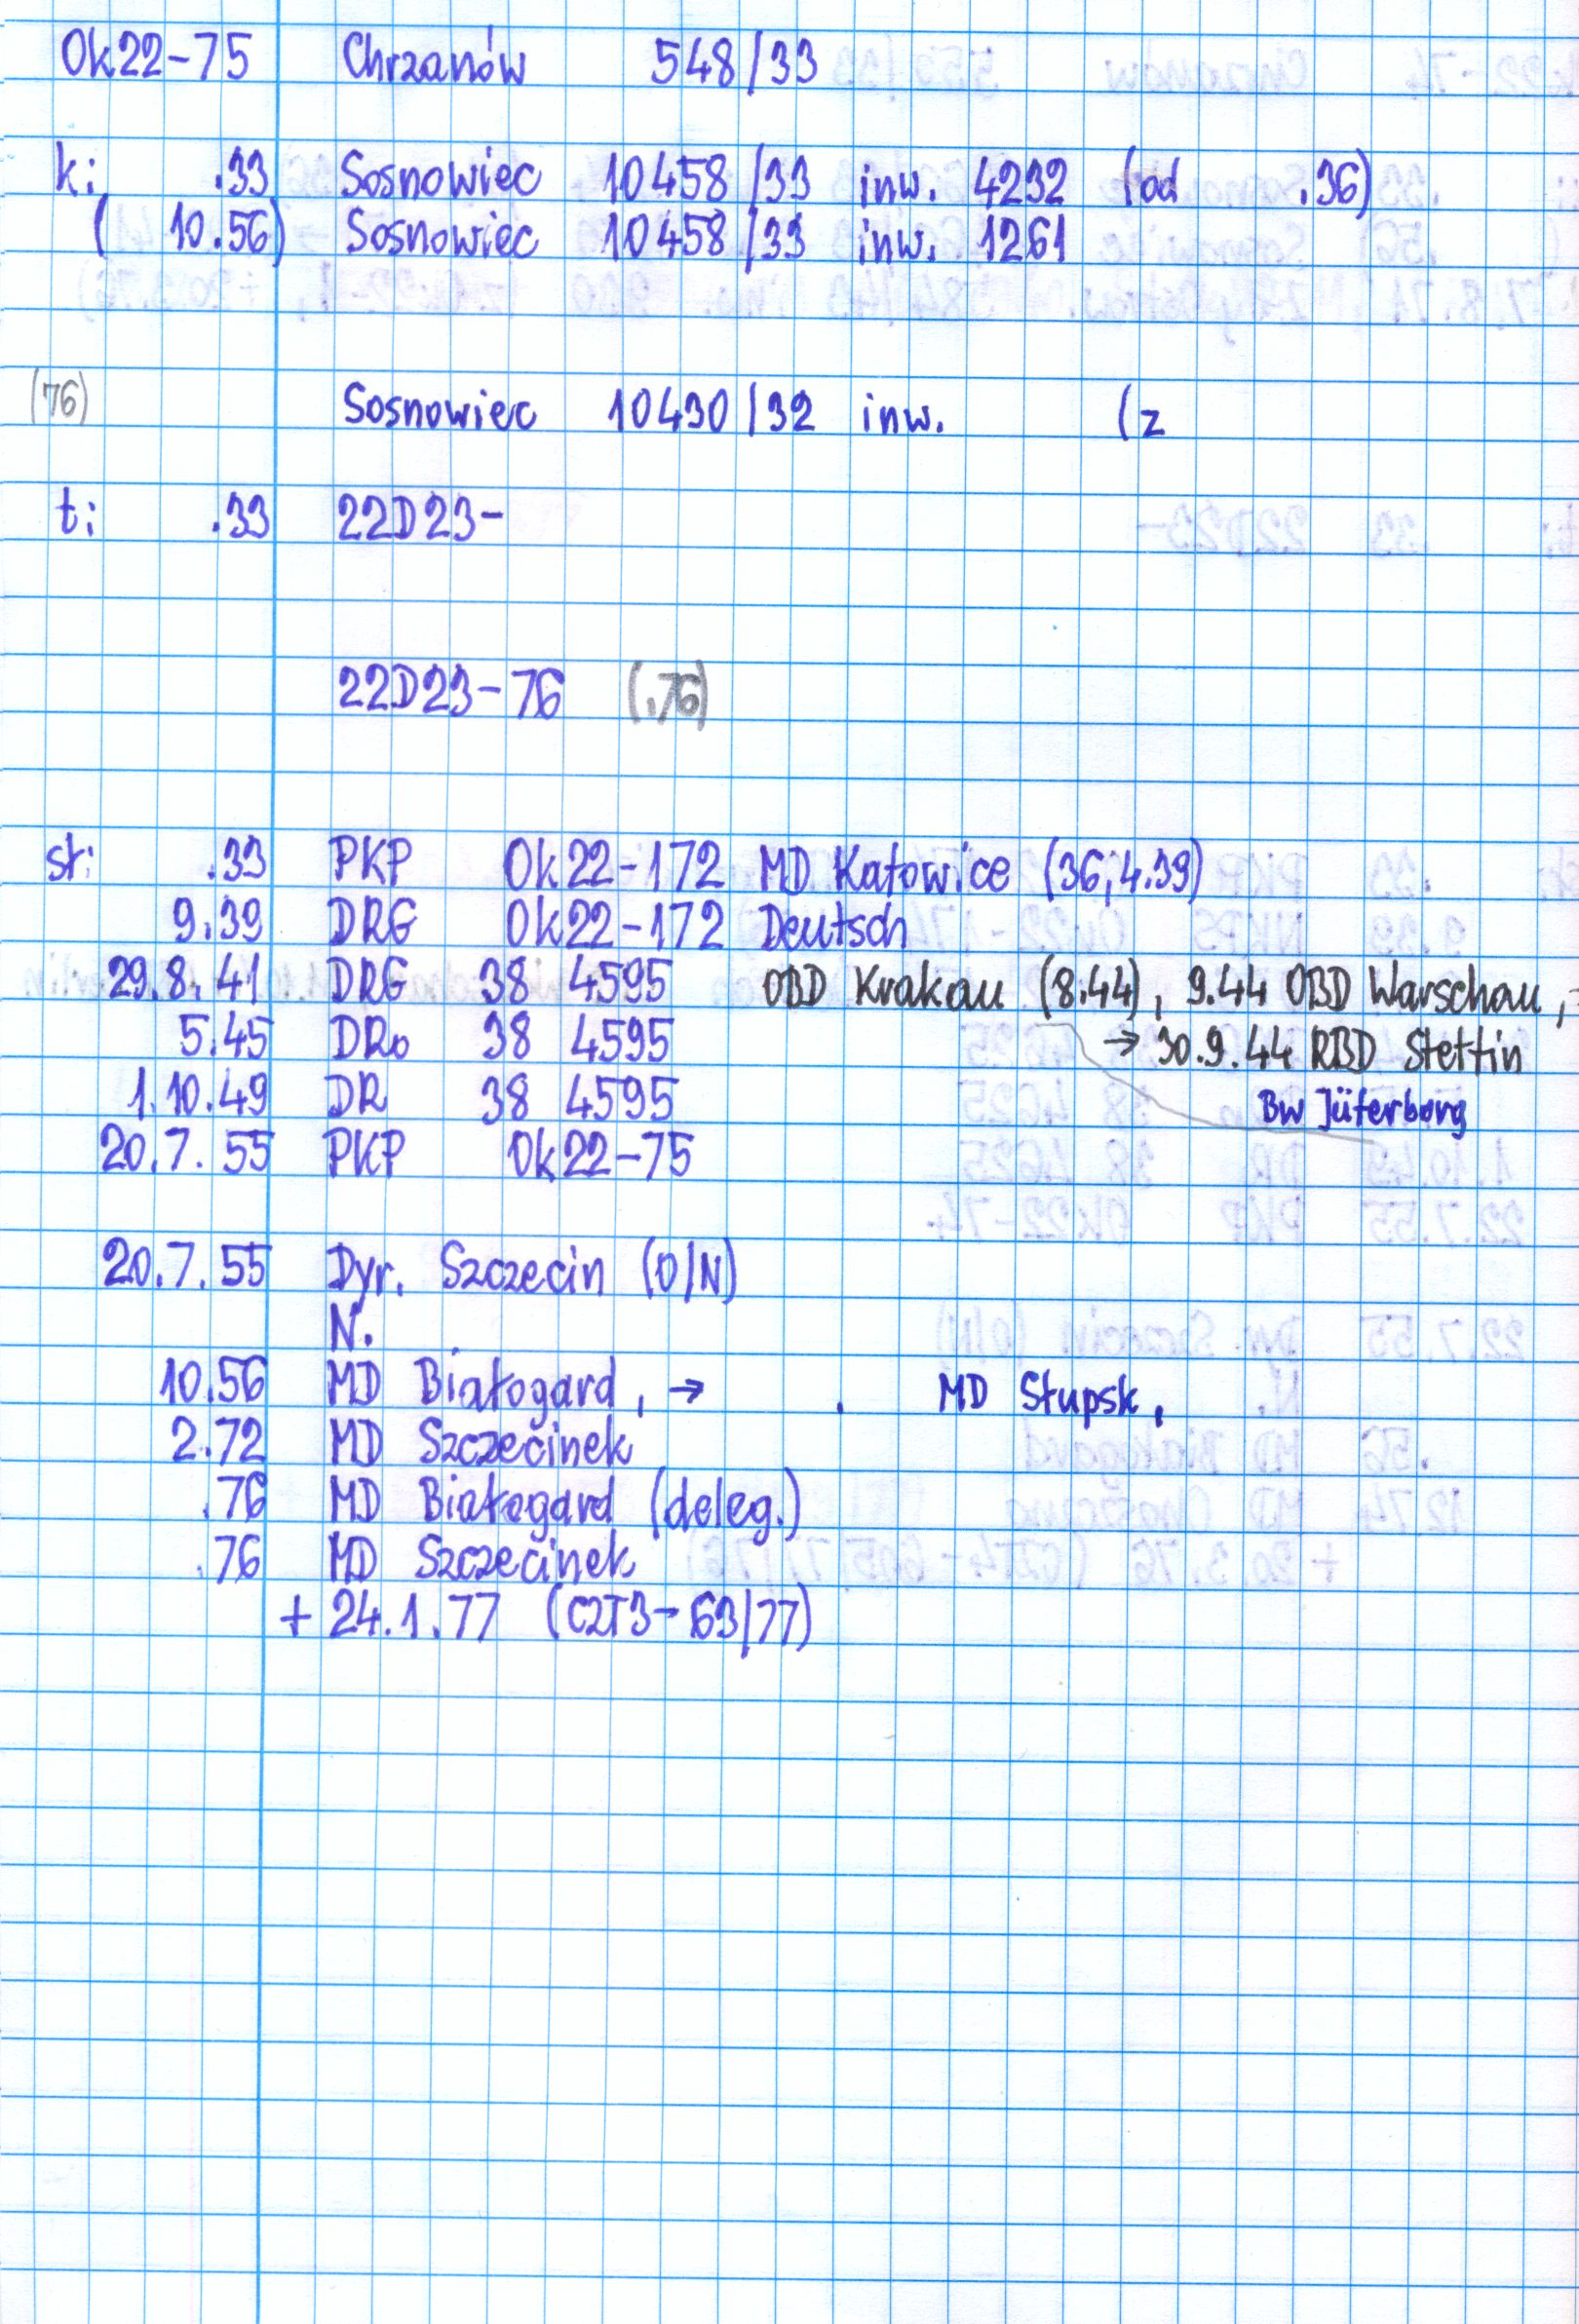 Ok22-75 Chrzanów 548/33
k: .33 Sosnowiec 10458/33 inw. 4232 (od .36)
( 10.56) Sosnowiec 10458/33 inw. 1261
(76) Sosnowiec 10430/32 inw. (z
t: .33 22D23-
22D23-76 (.76)
st: .33 PKP Ok22-172 MD Katowice (36; 4.39)
9.39 DRG Ok22-172 Deutsch
29.8.41 DRG 38 4595 OBD Krakau (8.44), 9.44 OBD Warschau,
5.45 DRo 38 4595 → 30.9.44 RBD Stettin
1.10.49 DR 38 4595 Bw Jüterborg
20.7.55 PKP Ok22-75
20.7.55 Dyr. Szczecin (O/N)
N.
10.56 MD Białogard, → . MD Słupsk,
2.72 MD Szczecinek
.76 MD Białogard (deleg.)
.76 MD Szczecinek
+ 24.1.77 (CZT3-63/77)